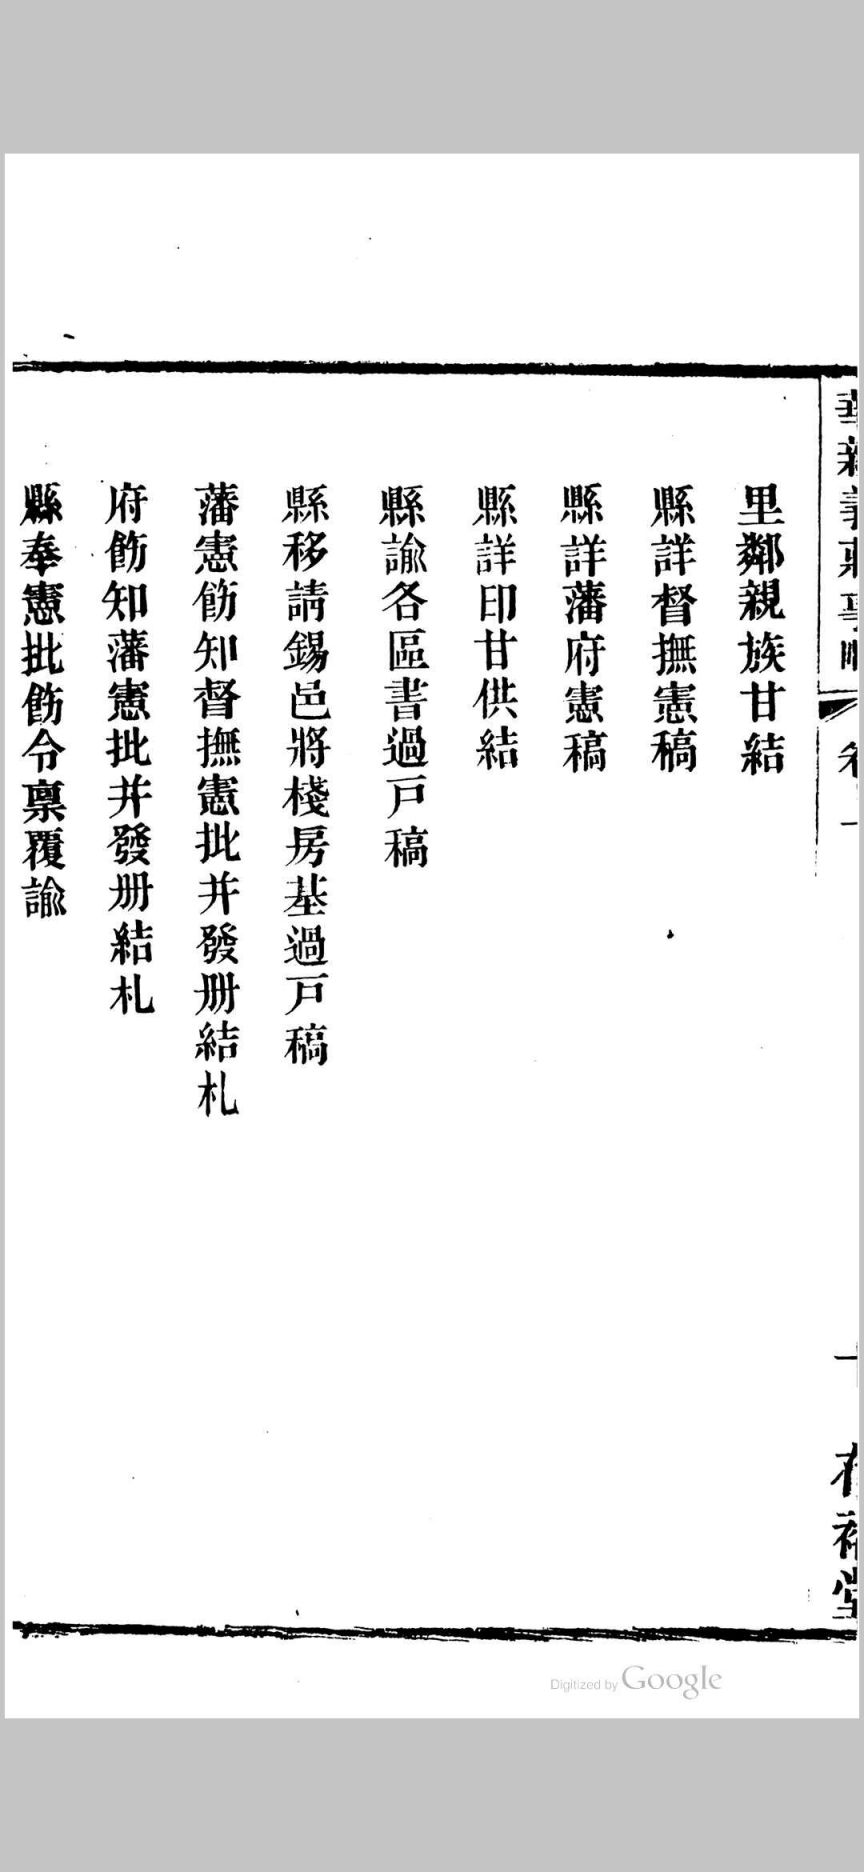 里鄰親族甘結
縣詳督撫憲稿
縣詳藩府憲稿
縣詳印甘供結
縣諭各區書過戸稿
縣移請錫邑將棧房基過戸稿
藩憲飭知督撫憲批并發册結札
府飭知藩憲批并發册結札
縣奉憲批飭令稟覆諭
Digitized by Google